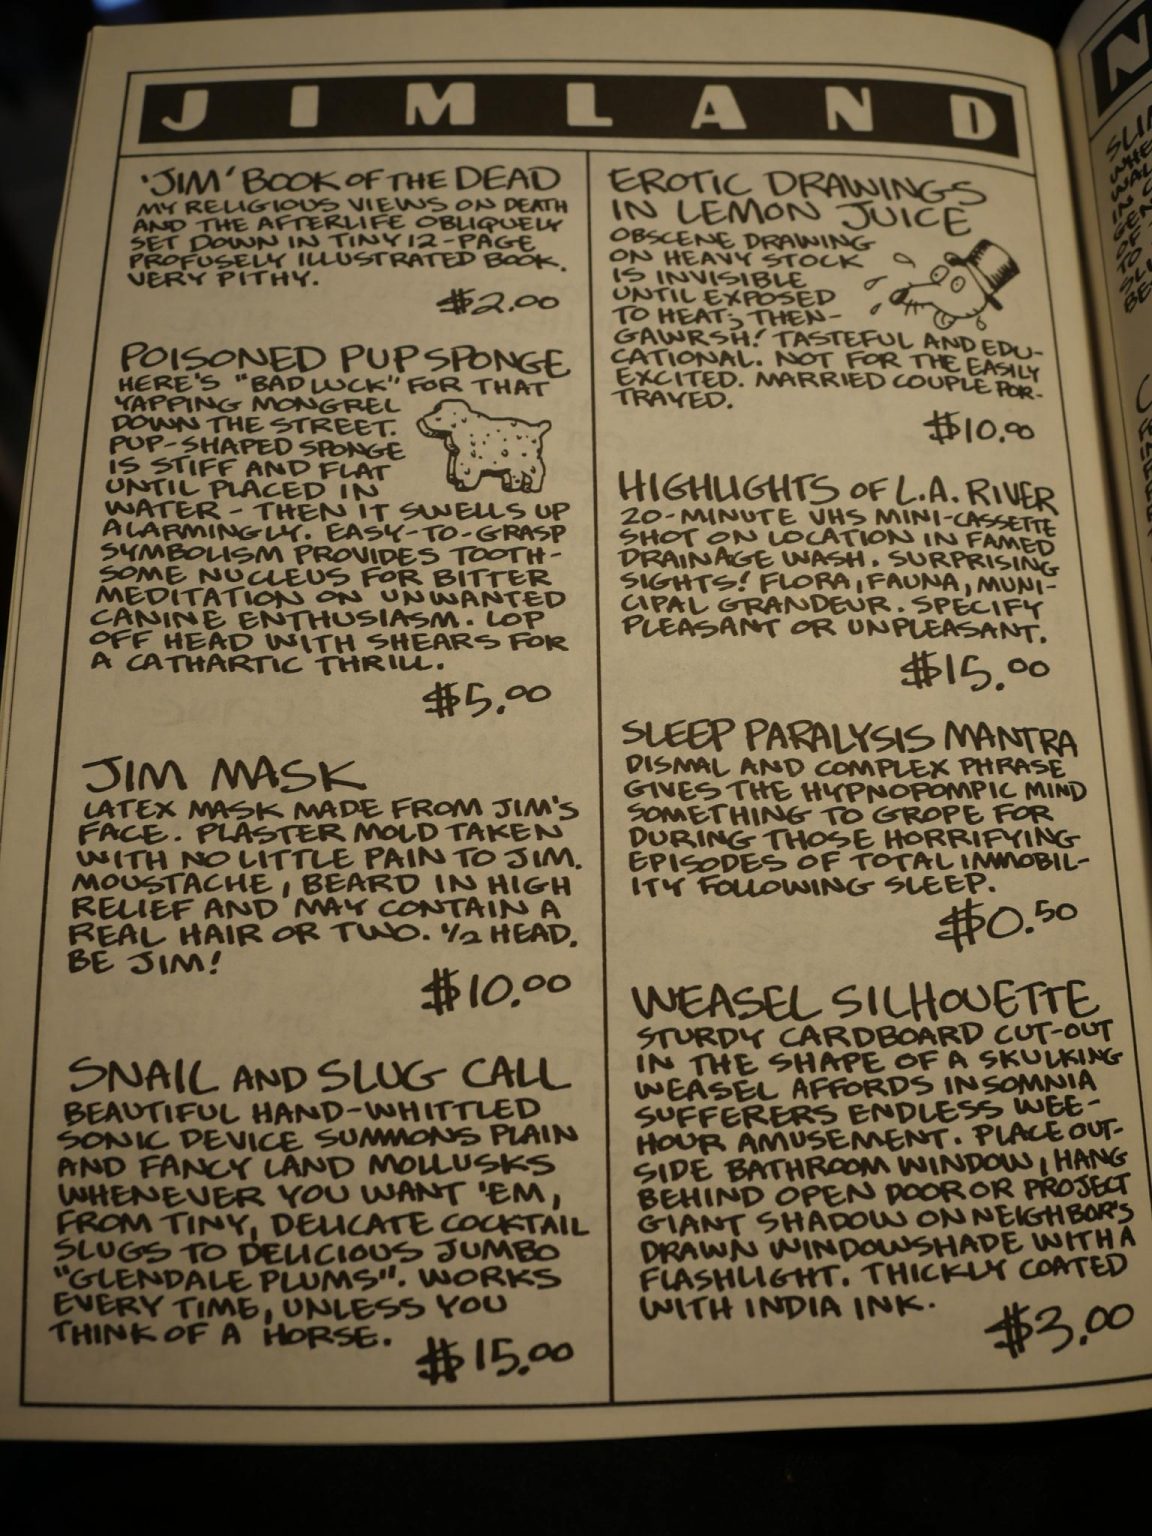 JIMLAND
'JIM' BOOK OF THE DEAD
MY RELIGIOUS VIEWS ON DEATH
AND THE AFTERLIFE OBLIQUELY
SET DOWN IN TINY 12-PAGE
PROFUSELY ILLUSTRATED BOOK.
VERY PITHY.
$2.00
POISONED PUP SPONGE
HERE'S "BAD LUCK" FOR THAT
YAPPING MONGREL
DOWN THE STREET.
PUP-SHAPED SPONGE
IS STIFF AND FLAT
UNTIL PLACED IN
WATER - THEN IT SWELLS UP
ALARMINGLY. EASY-TO-GRASP
SYMBOLISM PROVIDES TOOTH-
SOME NUCLEUS FOR BITTER
MEDITATION ON UNWANTED
CANINE ENTHUSIASM. LOP
OFF HEAD WITH SHEARS FOR
A CATHARTIC THRILL.
$5.00
JIM MASK
LATEX MASK MADE FROM JIM'S
FACE. PLASTER MOLD TAKEN
WITH NO LITTLE PAIN TO JIM.
MOUSTACHE, BEARD IN HIGH
RELIEF AND MAY CONTAIN A
REAL HAIR OR TWO. 1/2 HEAD.
BE JIM!
$10.00
SNAIL AND SLUG CALL
BEAUTIFUL HAND-WHITTLED
SONIC DEVICE SUMMONS PLAIN
AND FANCY LAND MOLLUSKS
WHENEVER YOU WANT 'EM,
FROM TINY, DELICATE COCKTAIL
SLUGS TO DELICIOUS JUMBO
"GLENDALE PLUMS". WORKS
EVERY TIME, UNLESS YOU
THINK OF A HORSE.
$15.00
EROTIC DRAWINGS
IN LEMON JUICE
OBSCENE DRAWING
ON HEAVY STOCK
IS INVISIBLE
UNTIL EXPOSED
TO HEAT; THEN-
GAWRSH! TASTEFUL AND EDU-
CATIONAL. NOT FOR THE EASILY
EXCITED. MARRIED COUPLE POR-
TRAYED.
$10.00
HIGHLIGHTS OF L.A. RIVER
20-MINUTE VHS MINI-CASSETTE
SHOT ON LOCATION IN FAMED
DRAINAGE WASH. SURPRISING
SIGHTS! FLORA, FAUNA, MUNI-
CIPAL GRANDEUR. SPECIFY
PLEASANT OR UNPLEASANT.
$15.00
SLEEP PARALYSIS MANTRA
DISMAL AND COMPLEX PHRASE
GIVES THE HYPNOPOMPIC MIND
SOMETHING TO GROPE FOR
DURING THOSE HORRIFYING
EPISODES OF TOTAL IMMOBIL-
ITY FOLLOWING SLEEP.
$0.50
WEASEL SILHOUETTE
STURDY CARDBOARD CUT-OUT
IN THE SHAPE OF A SKULKING
WEASEL AFFORDS INSOMNIA
SUFFERERS ENDLESS WEE-
HOUR AMUSEMENT. PLACE OUT-
SIDE BATHROOM WINDOW, HANG
BEHIND OPEN DOOR OR PROJECT
GIANT SHADOW ON NEIGHBOR'S
DRAWN WINDOWSHADE WITH A
FLASHLIGHT. THICKLY COATED
WITH INDIA INK.
$3.00